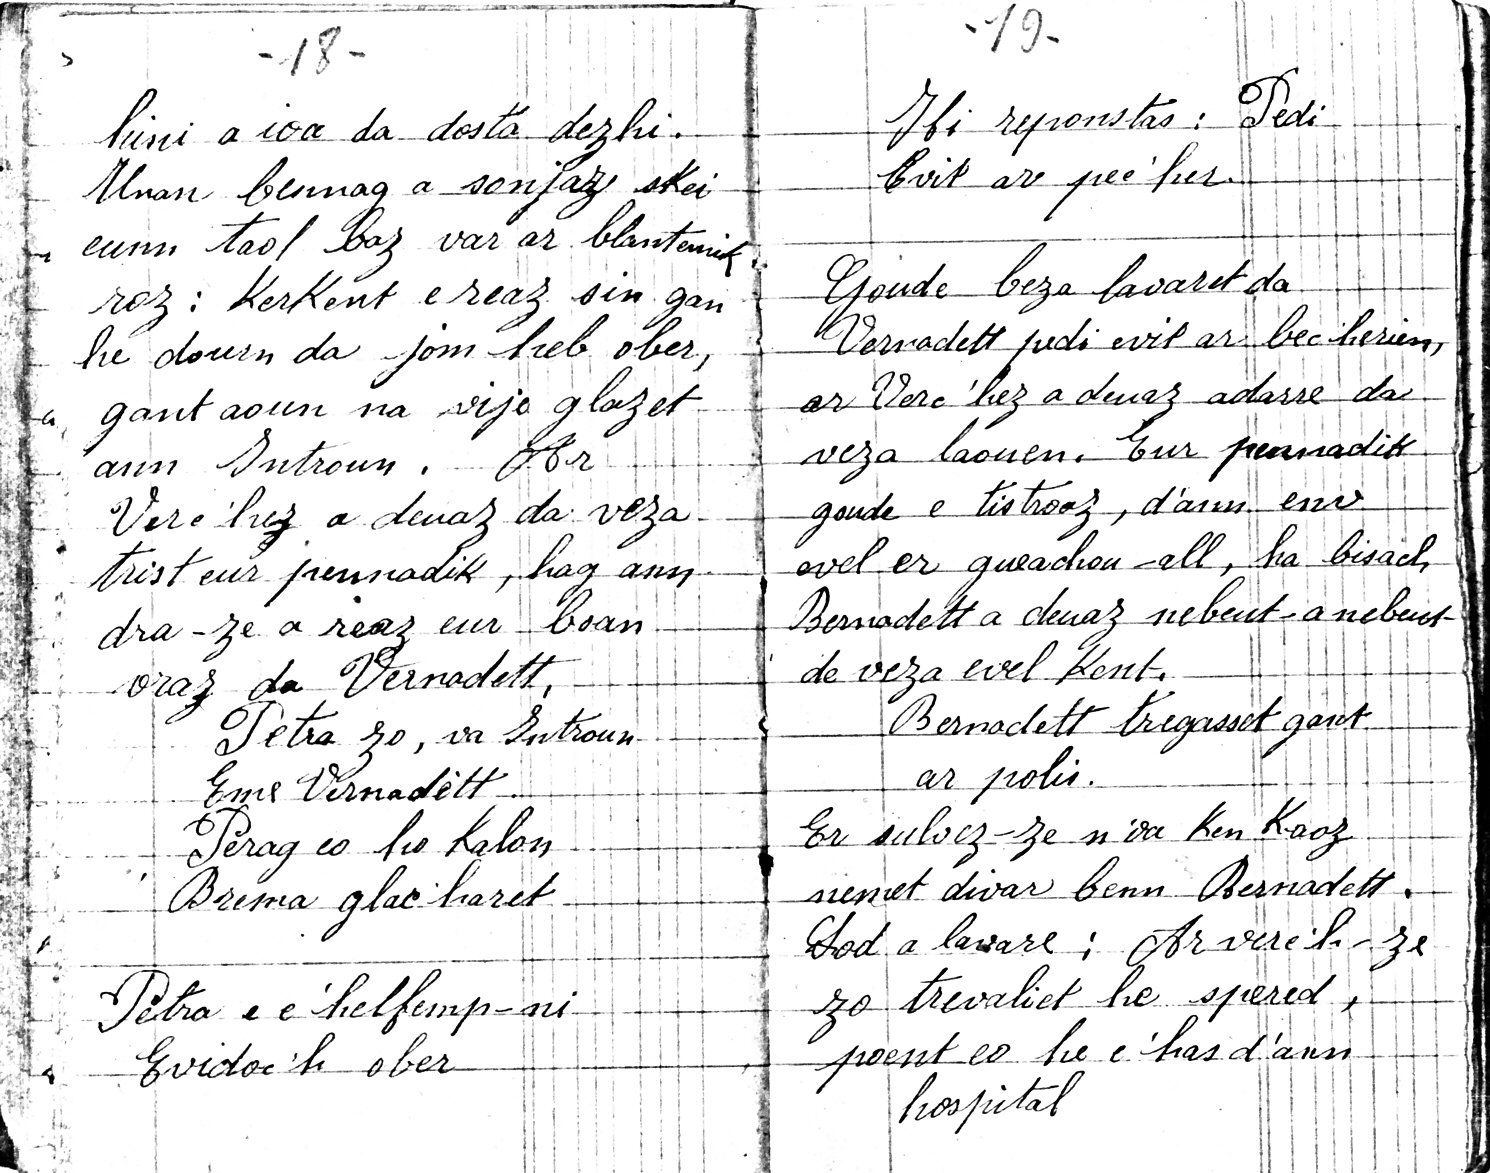 -18-
hini a ioa da dosta dezhi.
Unan bennag a sonjaz skei
eunn taol baz var ar blantennik
roz : Kerkent e reaz sin gan
he dourn da jom heb ober,
gant aoun na vije glazet
ann Introun. Ar
Verc'hez a deuaz da veza
trist eur pennadik, hag ann
dra-ze a reaz eur boan
vraz da Vernadett.
Petra zo, va Introun
Eme Vernadètt
Perag eo ho Kalon
Brema glac'haret
Petra e c'helfemp-ni
Evidoc'h ober
-19-
Hi reponstas : Pedi
Evit ar pec'her.
Goude beza lavaret da
Vernadett pedi evit ar bec'herien,
ar Verc'hez a deuaz adarre da
veza laouen. Eur pennadik
goude e tistroaz, d'ann env
evel er gueachou-all, ha bisach
Bernadett a deuaz nebeut-a nebeut
da veza evel Kent.
Bernadett tregasset gant
ar polis.
Er sulvez-ze n'oa Ken Kaoz
nemet divar benn Bernadett.
Lod a lavare ; Ar verc'h-ze
zo trevaliet he spered,
poent eo he c'has d'ann
hospital